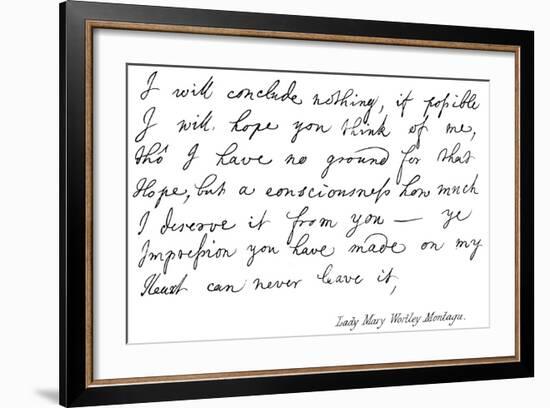 I will conclude nothing, if poſsible
I will hope you think of me,
tho' I have no ground for that
Hope, but a consciousneſs how much
I deserve it from you — ye
Impreſsion you have made on my
Heart can never leave it,
Lady Mary Wortley Montagu.